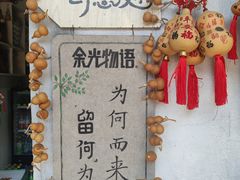 余光物语
为何而来
留何为
福